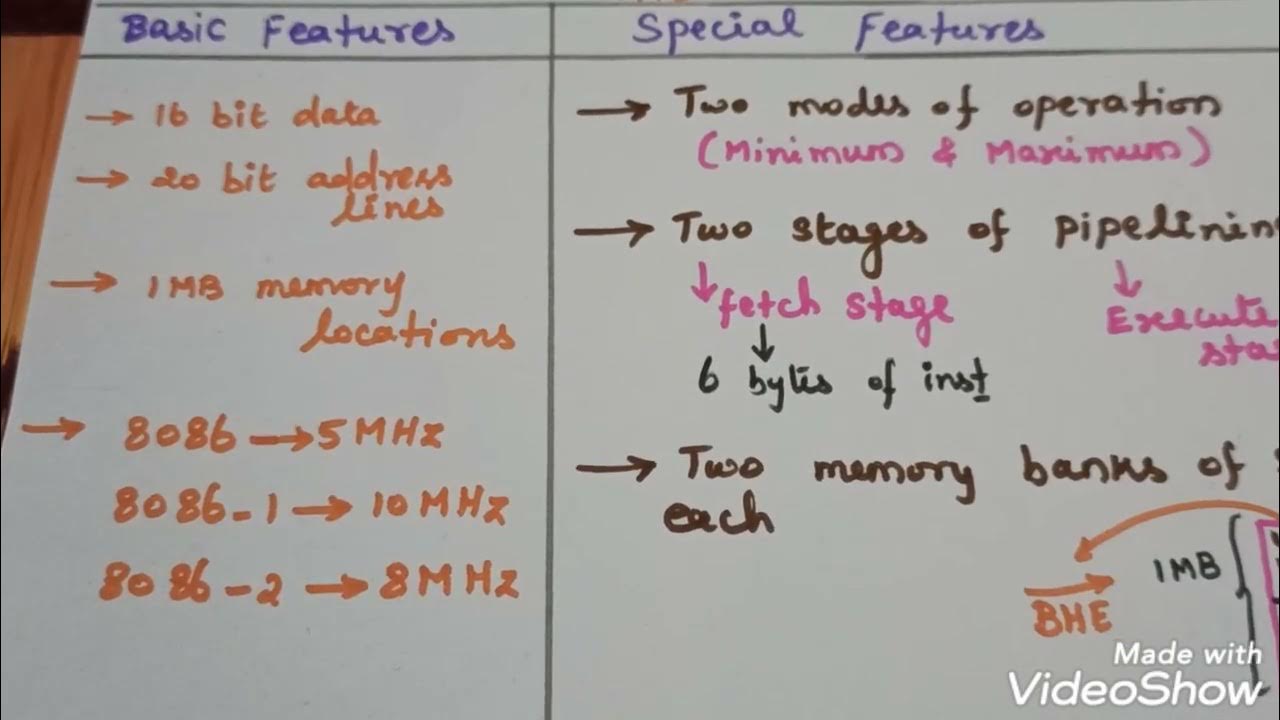 Basic Features
→ 16 bit data
→ 20 bit address
lines
→ 1MB memory
locations
→ 8086 → 5 MHz
8086-1 → 10 MHz
8086-2 → 8 MHz
Special Features
→ Two modes of operation
(Minimum & Maximum)
→ Two stages of pipelinin
↓ fetch stage
↓
6 bytes of inst
↓
Execute
sta
→ Two memory banks of
each
1MB
BHE
Made with
VideoShow